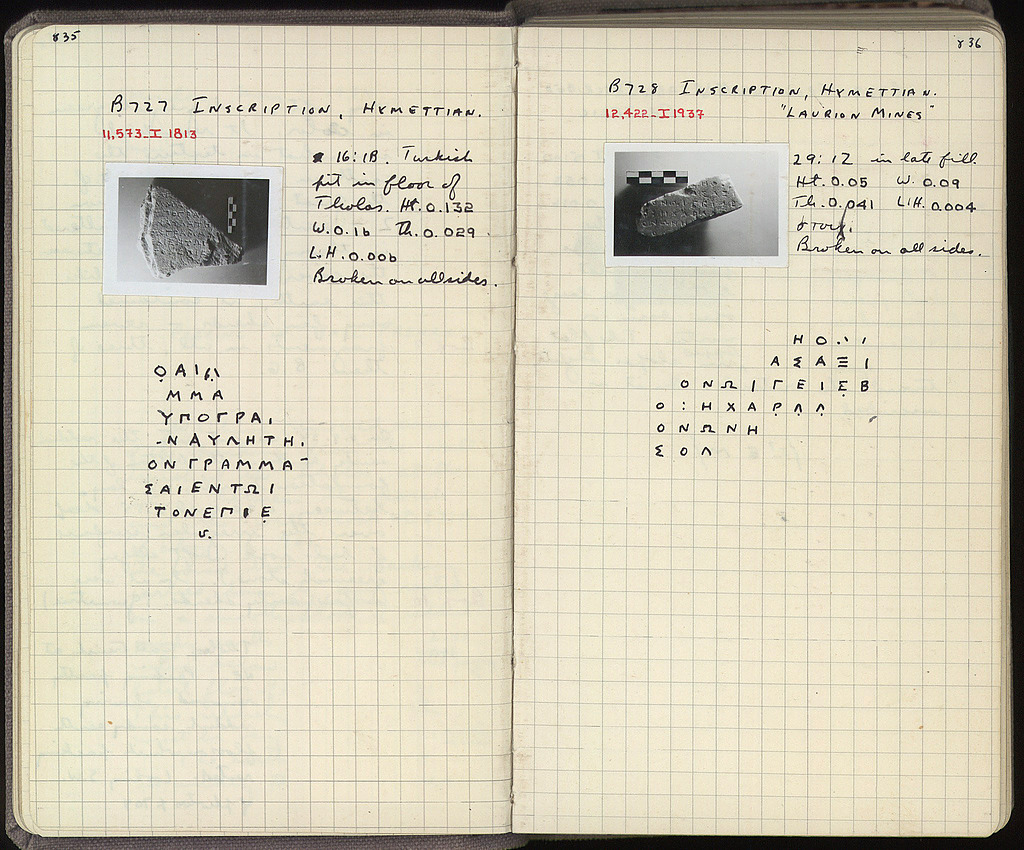 835
B727 INSCRIPTION, HYMETTIAN.
11,573-I 1813
16:IB. Turkish
pit in floor of
Tholos. Ht. 0.132
W. 0.16 - Th. 0.029
L.H. 0.006
Broken on all sides.
ΟΑΙ
ΜΜΑ
ΥΠΟΓΡΑ
ΝΑΥΛΗΤΗ
ΟΝΓΡΑΜΜΑ
ΣΑΙΕΝΤΩΙ
ΤΟΝΕΠΙΕ
υ.
836
B728 INSCRIPTION, HYMETTIAN.
12,422-I 1937 "LAURION MINES"
29:IZ in late fill.
Ht. 0.05 W. 0.09
Th. 0.041 L.H. 0.004
στοιχ.
Broken on all sides.
ΗΟ
ΑΣΑΞΙ
ΟΝΩΙΓΕΙΣΒ
Ο:ΗΧΑΡΛΛ
ΟΝΩΝΗ
ΣΟΛ